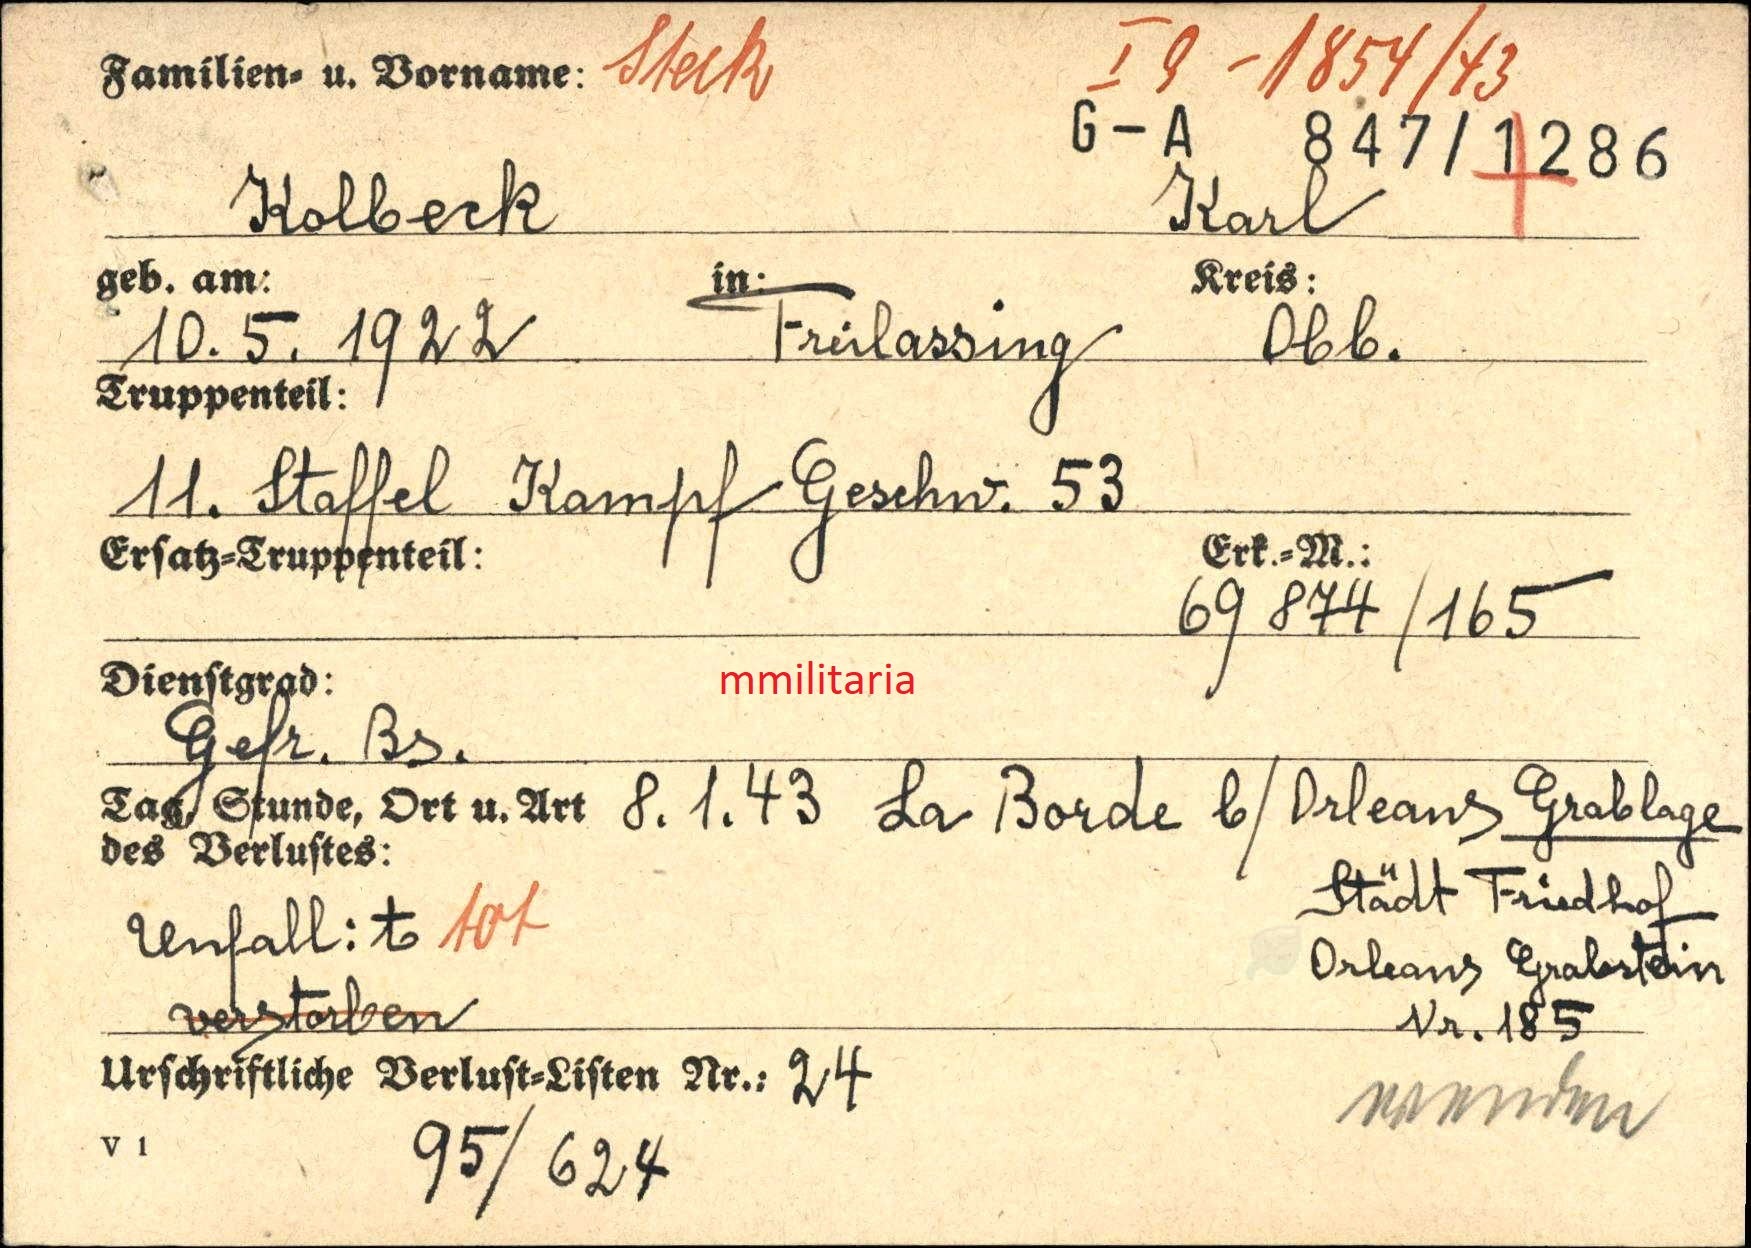 Familien- u. Vorname: Steck I 9 - 1854/43
G-A 847/1286
Kolbeck Karl
geb. am: in: Kreis:
10. 5. 1922 Freilassing Obb.
Truppenteil:
11. Staffel Kampf Geschw. 53
Ersatz-Truppenteil: Erk.-M.:
69 874/165
Dienstgrad: mmilitaria
Gefr. Bs.
Tag, Stunde, Ort u. Art 8. 1. 43 La Borde b/Orleans Grablage
des Verlustes:
Städt Friedhof
Unfall: t tot
Orleans Grabstein
verstorben Nr. 185
Urschriftliche Verlust-Listen Nr.: 24
wenden
V 1 95/624